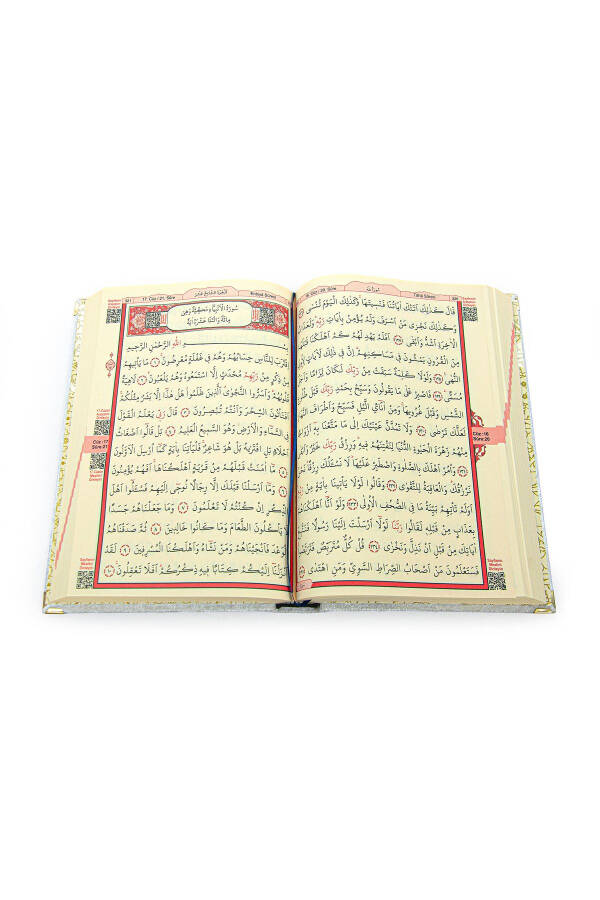 Tâhâ Sûresi
سُورَةُ طٰهٰ
Cüz / 20. Sûre
قَالَ كَذٰلِكَ اَتَتْكَ اٰيَاتُنَا فَنَسِيتَهَا وَكَذٰلِكَ الْيَوْمَ تُنْسٰى
وَكَذٰلِكَ نَجْزِى مَنْ اَسْرَفَ وَلَمْ يُؤْمِنْ بِاٰيَاتِ رَبِّهِ وَلَعَذَابُ
الْاٰخِرَةِ اَشَدُّ وَاَبْقٰى ﴿١٢٧﴾ اَفَلَمْ يَهْدِ لَهُمْ كَمْ اَهْلَكْنَا
مِنَ الْقُرُونِ يَمْشُونَ فِى مَسَاكِنِهِمْ اِنَّ فِى ذٰلِكَ لَاٰيَاتٍ
النُّهٰى ﴿١٢٨﴾ وَلَوْلَا كَلِمَةٌ سَبَقَتْ مِنْ رَبِّكَ لَكَانَ لِزَامًا وَاَجَلٌ
مُسَمًّى ﴿١٢٩﴾ فَاصْبِرْ عَلٰى مَا يَقُولُونَ وَسَبِّحْ بِحَمْدِ رَبِّكَ قَبْلَ طُلُوعِ
الشَّمْسِ وَقَبْلَ غُرُوبِهَا وَمِنْ اٰنَائِ الَّيْلِ فَسَبِّحْ وَاَطْرَافَ النَّهَارِ
لَعَلَّكَ تَرْضٰى ﴿١٣٠﴾ وَلَا تَمُدَّنَّ عَيْنَيْكَ اِلٰى مَا مَتَّعْنَا بِهِ اَزْوَاجًا
مِنْهُمْ زَهْرَةَ الْحَيٰوةِ الدُّنْيَا لِنَفْتِنَهُمْ فِيهِ وَرِزْقُ رَبِّكَ خَيْرٌ وَاَبْقٰى
وَأْمُرْ اَهْلَكَ بِالصَّلٰوةِ وَاصْطَبِرْ عَلَيْهَا لَا نَسْئَلُكَ رِزْقًا نَحْنُ
نَرْزُقُكَ وَالْعَاقِبَةُ لِلتَّقْوٰى ﴿١٣٢﴾ وَقَالُوا لَوْلَا يَأْتِينَا بِاٰيَةٍ مِنْ رَبِّهِ
اَوَلَمْ تَأْتِهِمْ بَيِّنَةُ مَا فِى الصُّحُفِ الْاُولٰى ﴿١٣٣﴾ وَلَوْ اَنَّا اَهْلَكْنَاهُمْ
بِعَذَابٍ مِنْ قَبْلِهِ لَقَالُوا رَبَّنَا لَوْلَا اَرْسَلْتَ اِلَيْنَا رَسُولًا فَنَتَّبِعَ
اٰيَاتِكَ مِنْ قَبْلِ اَنْ نَذِلَّ وَنَخْزٰى ﴿١٣٤﴾ قُلْ كُلٌّ مُتَرَبِّصٌ فَتَرَبَّصُوا
فَسَتَعْلَمُونَ مَنْ اَصْحَابُ الصِّرَاطِ السَّوِىِّ وَمَنِ اهْتَدٰى
Cüz :16
Sûre:20
Enbiyâ Sûresi
17. Cüz / 21. Sûre
321
سُورَةُ الْاَنْبِيَاءِ مَكِّيَّةٌ وَهِىَ
مِائَةٌ وَاثْنَتَا عَشْرَةَ اٰيَةً
بِسْمِ اللّٰهِ الرَّحْمٰنِ الرَّحِيمِ
اِقْتَرَبَ لِلنَّاسِ حِسَابُهُمْ وَهُمْ فِى غَفْلَةٍ مُعْرِضُونَ ﴿١﴾ مَا يَأْتِيهِمْ
مِنْ ذِكْرٍ مِنْ رَبِّهِمْ مُحْدَثٍ اِلَّا اسْتَمَعُوهُ وَهُمْ يَلْعَبُونَ ﴿٢﴾ لَاهِيَةً
قُلُوبُهُمْ وَاَسَرُّوا النَّجْوَى الَّذِينَ ظَلَمُوا هَلْ هٰذَا اِلَّا بَشَرٌ مِثْلُكُمْ
اَفَتَأْتُونَ السِّحْرَ وَاَنْتُمْ تُبْصِرُونَ ﴿٣﴾ قَالَ رَبِّى يَعْلَمُ الْقَوْلَ
فِى السَّمَاءِ وَالْاَرْضِ وَهُوَ السَّمِيعُ الْعَلِيمُ ﴿٤﴾ بَلْ قَالُوا اَضْغَاثُ
اَحْلَامٍ بَلِ افْتَرٰيهُ بَلْ هُوَ شَاعِرٌ فَلْيَأْتِنَا بِاٰيَةٍ كَمَا اُرْسِلَ الْاَوَّلُونَ
﴿٥﴾ مَا اٰمَنَتْ قَبْلَهُمْ مِنْ قَرْيَةٍ اَهْلَكْنَاهَا اَفَهُمْ يُؤْمِنُونَ
﴿٦﴾ وَمَا اَرْسَلْنَا قَبْلَكَ اِلَّا رِجَالًا نُوحِى اِلَيْهِمْ فَسْئَلُوا اَهْلَ
الذِّكْرِ اِنْ كُنْتُمْ لَا تَعْلَمُونَ ﴿٧﴾ وَمَا جَعَلْنَاهُمْ جَسَدًا
لَا يَأْكُلُونَ الطَّعَامَ وَمَا كَانُوا خَالِدِينَ ﴿٨﴾ ثُمَّ صَدَقْنَاهُمُ
الْوَعْدَ فَاَنْجَيْنَاهُمْ وَمَنْ نَشَاءُ وَاَهْلَكْنَا الْمُسْرِفِينَ ﴿٩﴾ لَقَدْ
اَنْزَلْنَا اِلَيْكُمْ كِتَابًا فِيهِ ذِكْرُكُمْ اَفَلَا تَعْقِلُونَ ﴿١٠﴾
Cüz :17
Sûre:21